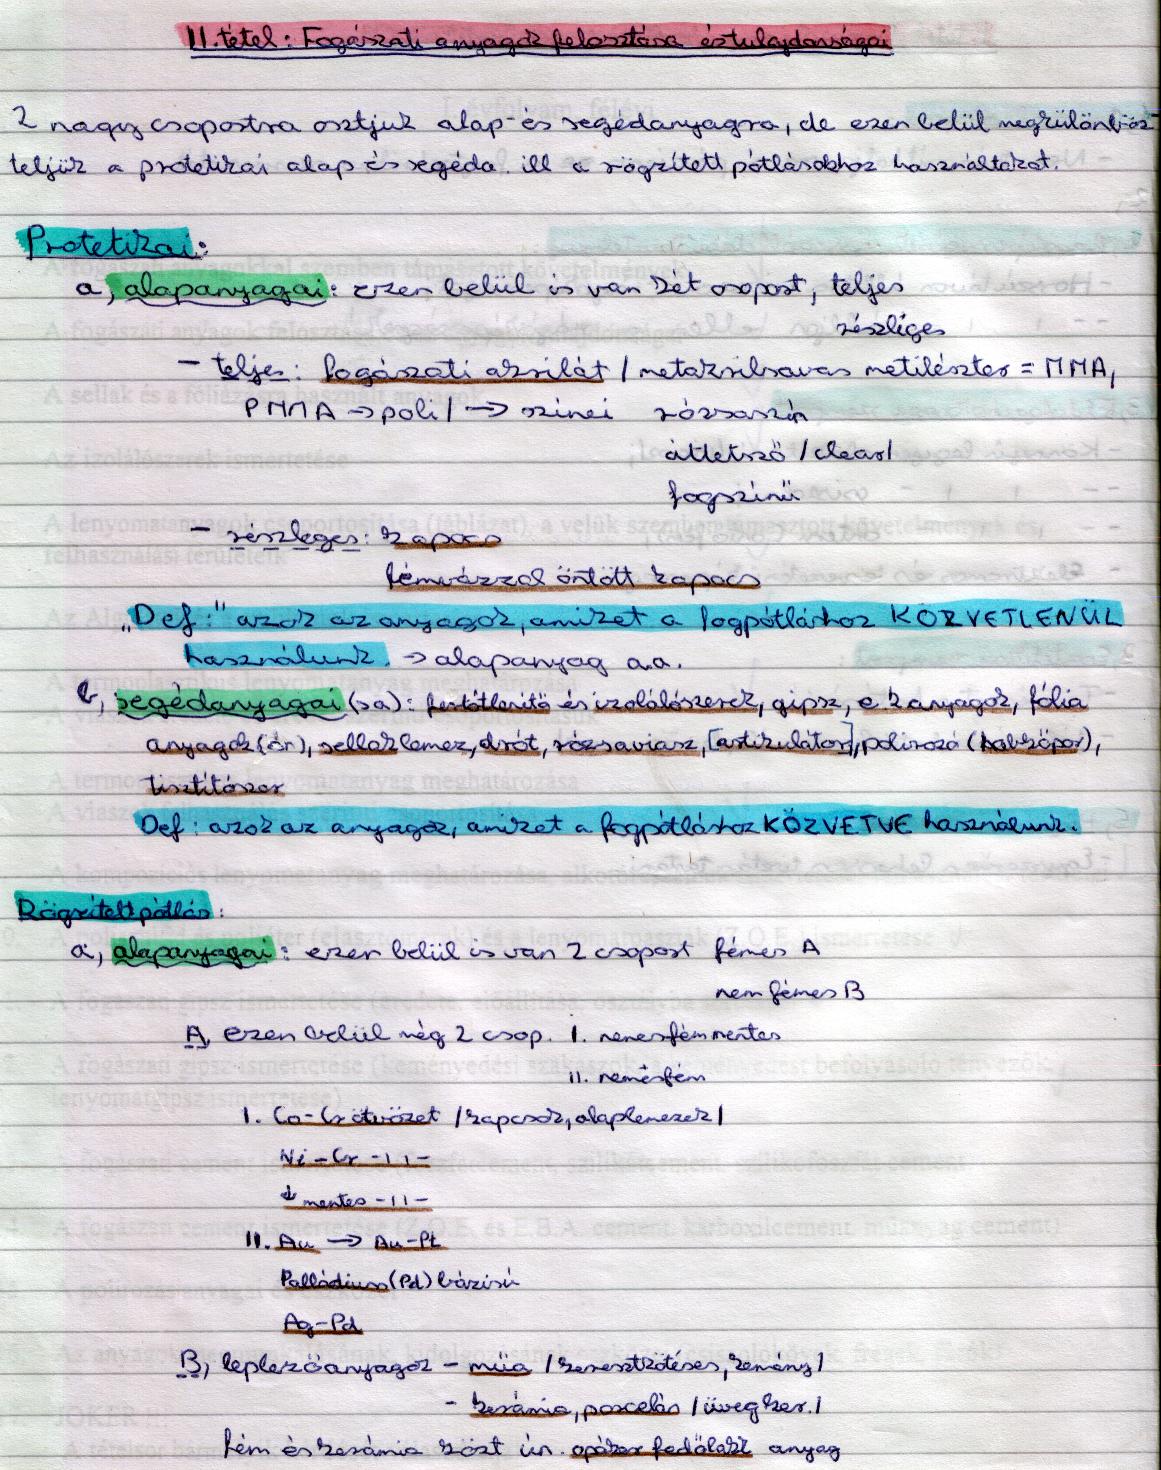 II. tétel: Fogászati anyagok felosztása és tulajdonságai
2 nagy csoportra osztjuk alap- és segédanyagra, de ezen belül megkülönböz-
tetjük a protetikai alap és segéda. ill a rögzített pótlásokhoz használtakat.
Protetikai:
a, alapanyagai: ezen belül is van két csoport, teljes
részleges
- teljes: fogászati akrilát /metakrilsavas metilészter = MMA,
PMMA → poli/ → színei rózsaszín
áttetsző /clear/
fogszínű
- részleges: kapocs
fémvázzal öntött kapocs
„Def:" azok az anyagok, amiket a fogpótláshoz KÖZVETLENÜL
használunk. → alapanyag a.a.
b, segédanyagai (sa): és izolálószerek, gipsz, anyagok, fólia
anyagok (ón), sellaklemez, drót, rózsaviasz, [artikulátor], polírozó (habkőpor),
tisztítószer
Def: azok az anyagok, amiket a fogpótláshoz KÖZVETVE használunk.
Rögzített pótlás:
a, alapanyagai: ezen belül is van 2 csoport fémes A
nem fémes B
A, ezen belül még 2 csop. I. nemesfémmentes
II. nemesfém
I. Co-Cr ötvözet /kapcsok, alaplemezek/
Ni-Cr -11-
↓ mentes -11-
II. Au → Au-Pt
Palládium (Pd) bázisú
Ag-Pd
B, leplezőanyagok - műa /keresztkötéses, kemény/
- kerámia, porcelán /üvegker./
fém és kerámia közt ún. opáker fedőlakk anyag